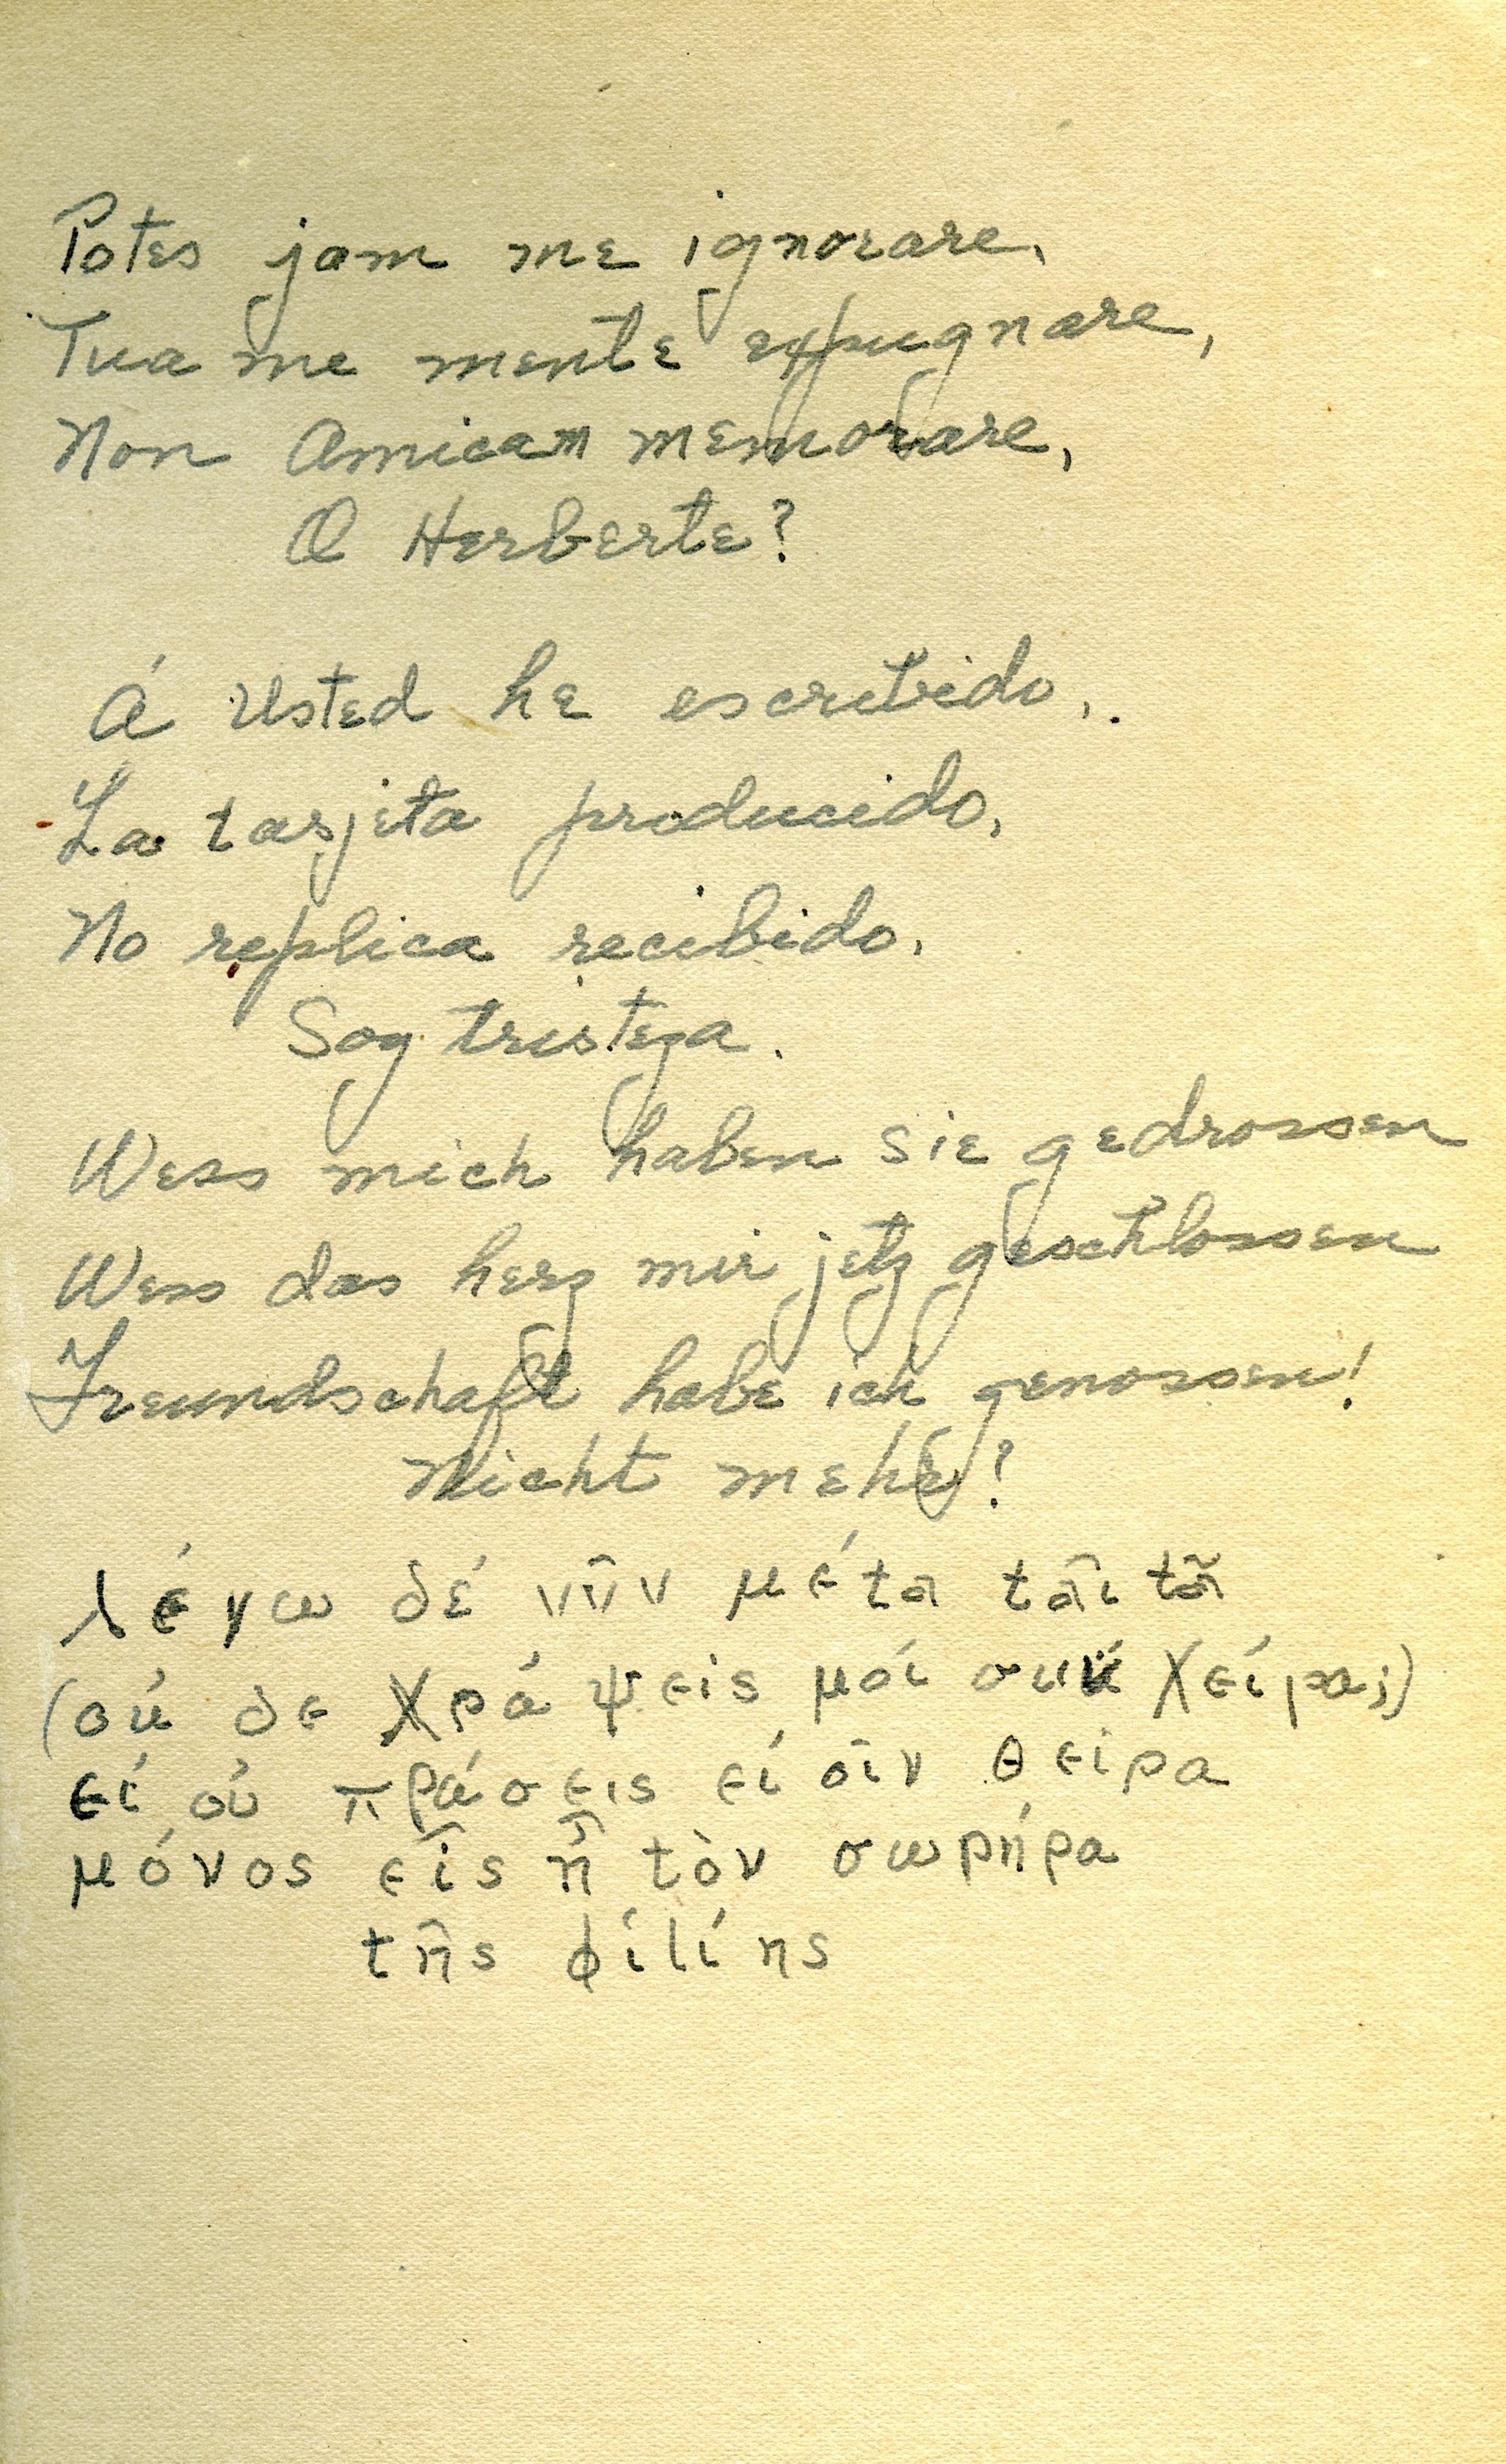 Potes jam me ignorare,
Tua me mente expugnare,
Non Amicam memorare,
O Herberte?
Á Usted he escribido,.
La tarjeta producido,
No replica recibido,
Soy tristeza.
Wess mich haben sie gedrossen
Wess das herz mir jetz geschlossen
Freundschaft habe ich genossen!
Nicht mehr?
λέγω δέ νῦν μέτα ταῖτα
(σύ δε χράψεις μοί σύν χείρα;)
εί ού πράσεις εί οῖν θείρα
μόνος εῖς ἦ τὸν σωρήρα
τῆς φίλίης